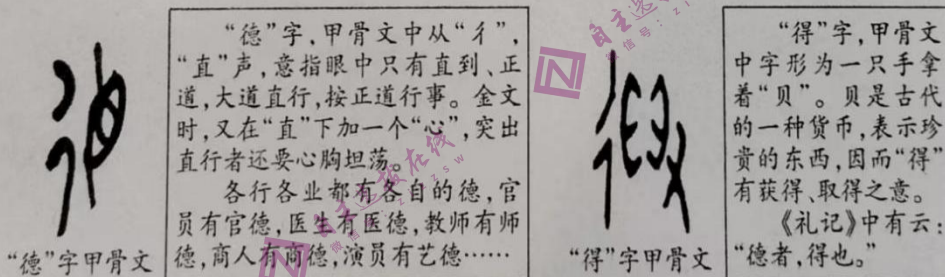 “德”字,甲骨文中从“彳”,
“直”声,意指眼中只有直到、正
道,大道直行,按正道行事。金文
时,又在“直”下加一个“心”,突出
直行者还要心胸坦荡。
各行各业都有各自的德,官
员有官德,医生有医德,教师有师
德,商人有商德,演员有艺德……
“德”字甲骨文
“得”字,甲骨文
中字形为一只手拿
着“贝”。贝是古代
的一种货币,表示珍
贵的东西,因而“得”
有获得、取得之意。
《礼记》中有云:
“德者,得也。”
“得”字甲骨文